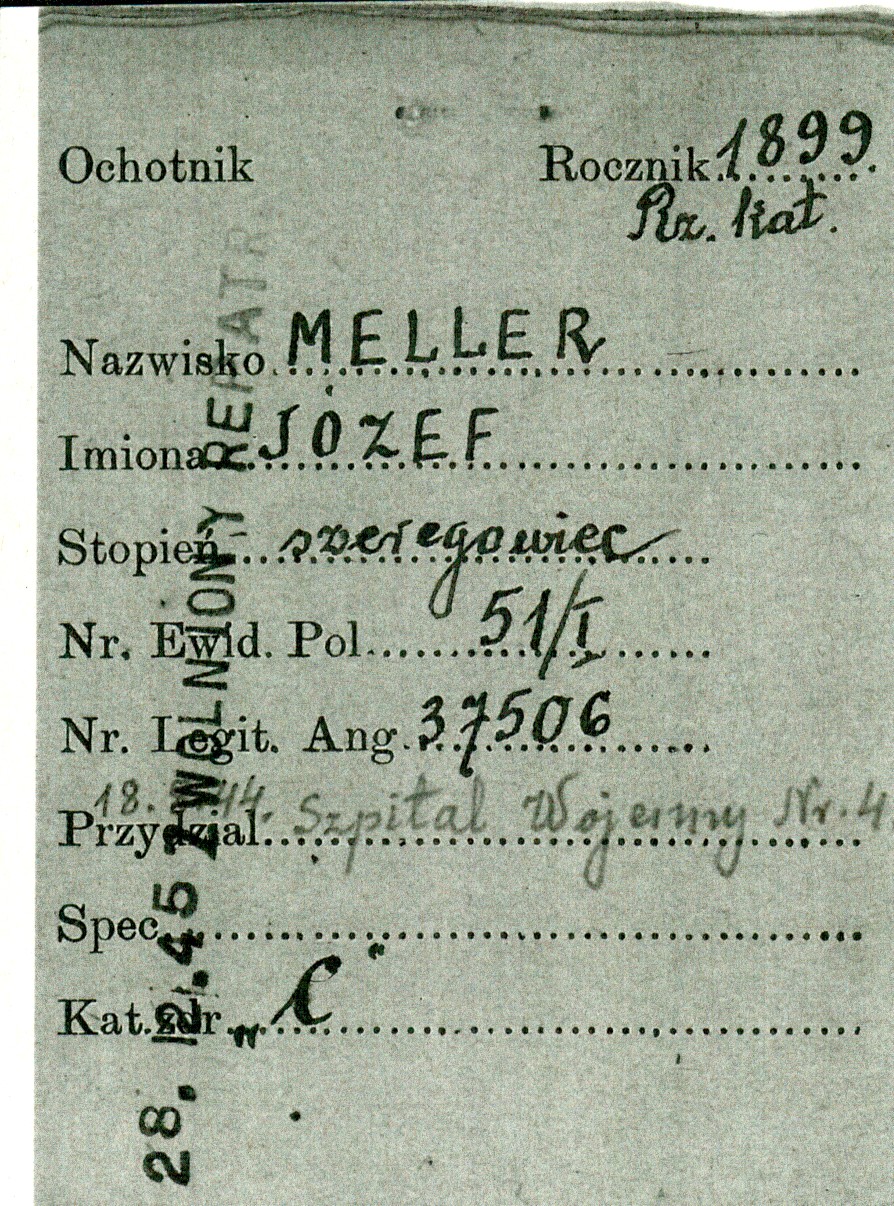 Ochotnik Rocznik 1899
Rz. kat.
Nazwisko MELLER
Imiona JÓZEF
Stopień szeregowiec
Nr. Ewid. Pol. 51/I
Nr. Legit. Ang. 37506
18. 44.
Przydział Szpital Wojenny Nr. 4
Spec.
Kat. zdr. „C”
28. 12. 45 ZWOLNIONY REPATR.